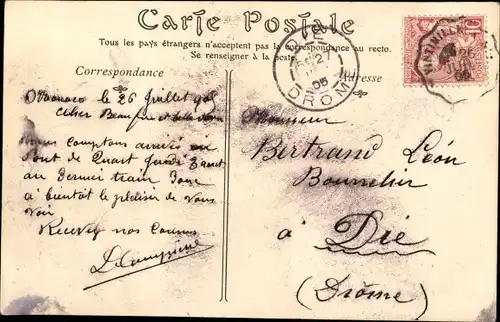 Carte Postale
Tous les pays étrangers n'acceptent pas la correspondance au recto.
Se renseigner à la poste.
Correspondance
Adresse
DIE
27
05
DROME
VINTIMILLE
26
Monaco le 26 Juillet 1905
Cher Beau frère et belle soeur
nous comptons arriver au
Pont de Quart jeudi 3 aout
au dernier train Donc
à bientôt le plaisir de vous
voir
Recevez nos
Monsieur
Bertrand Léon
Bourrelier
à Die
(Drôme)